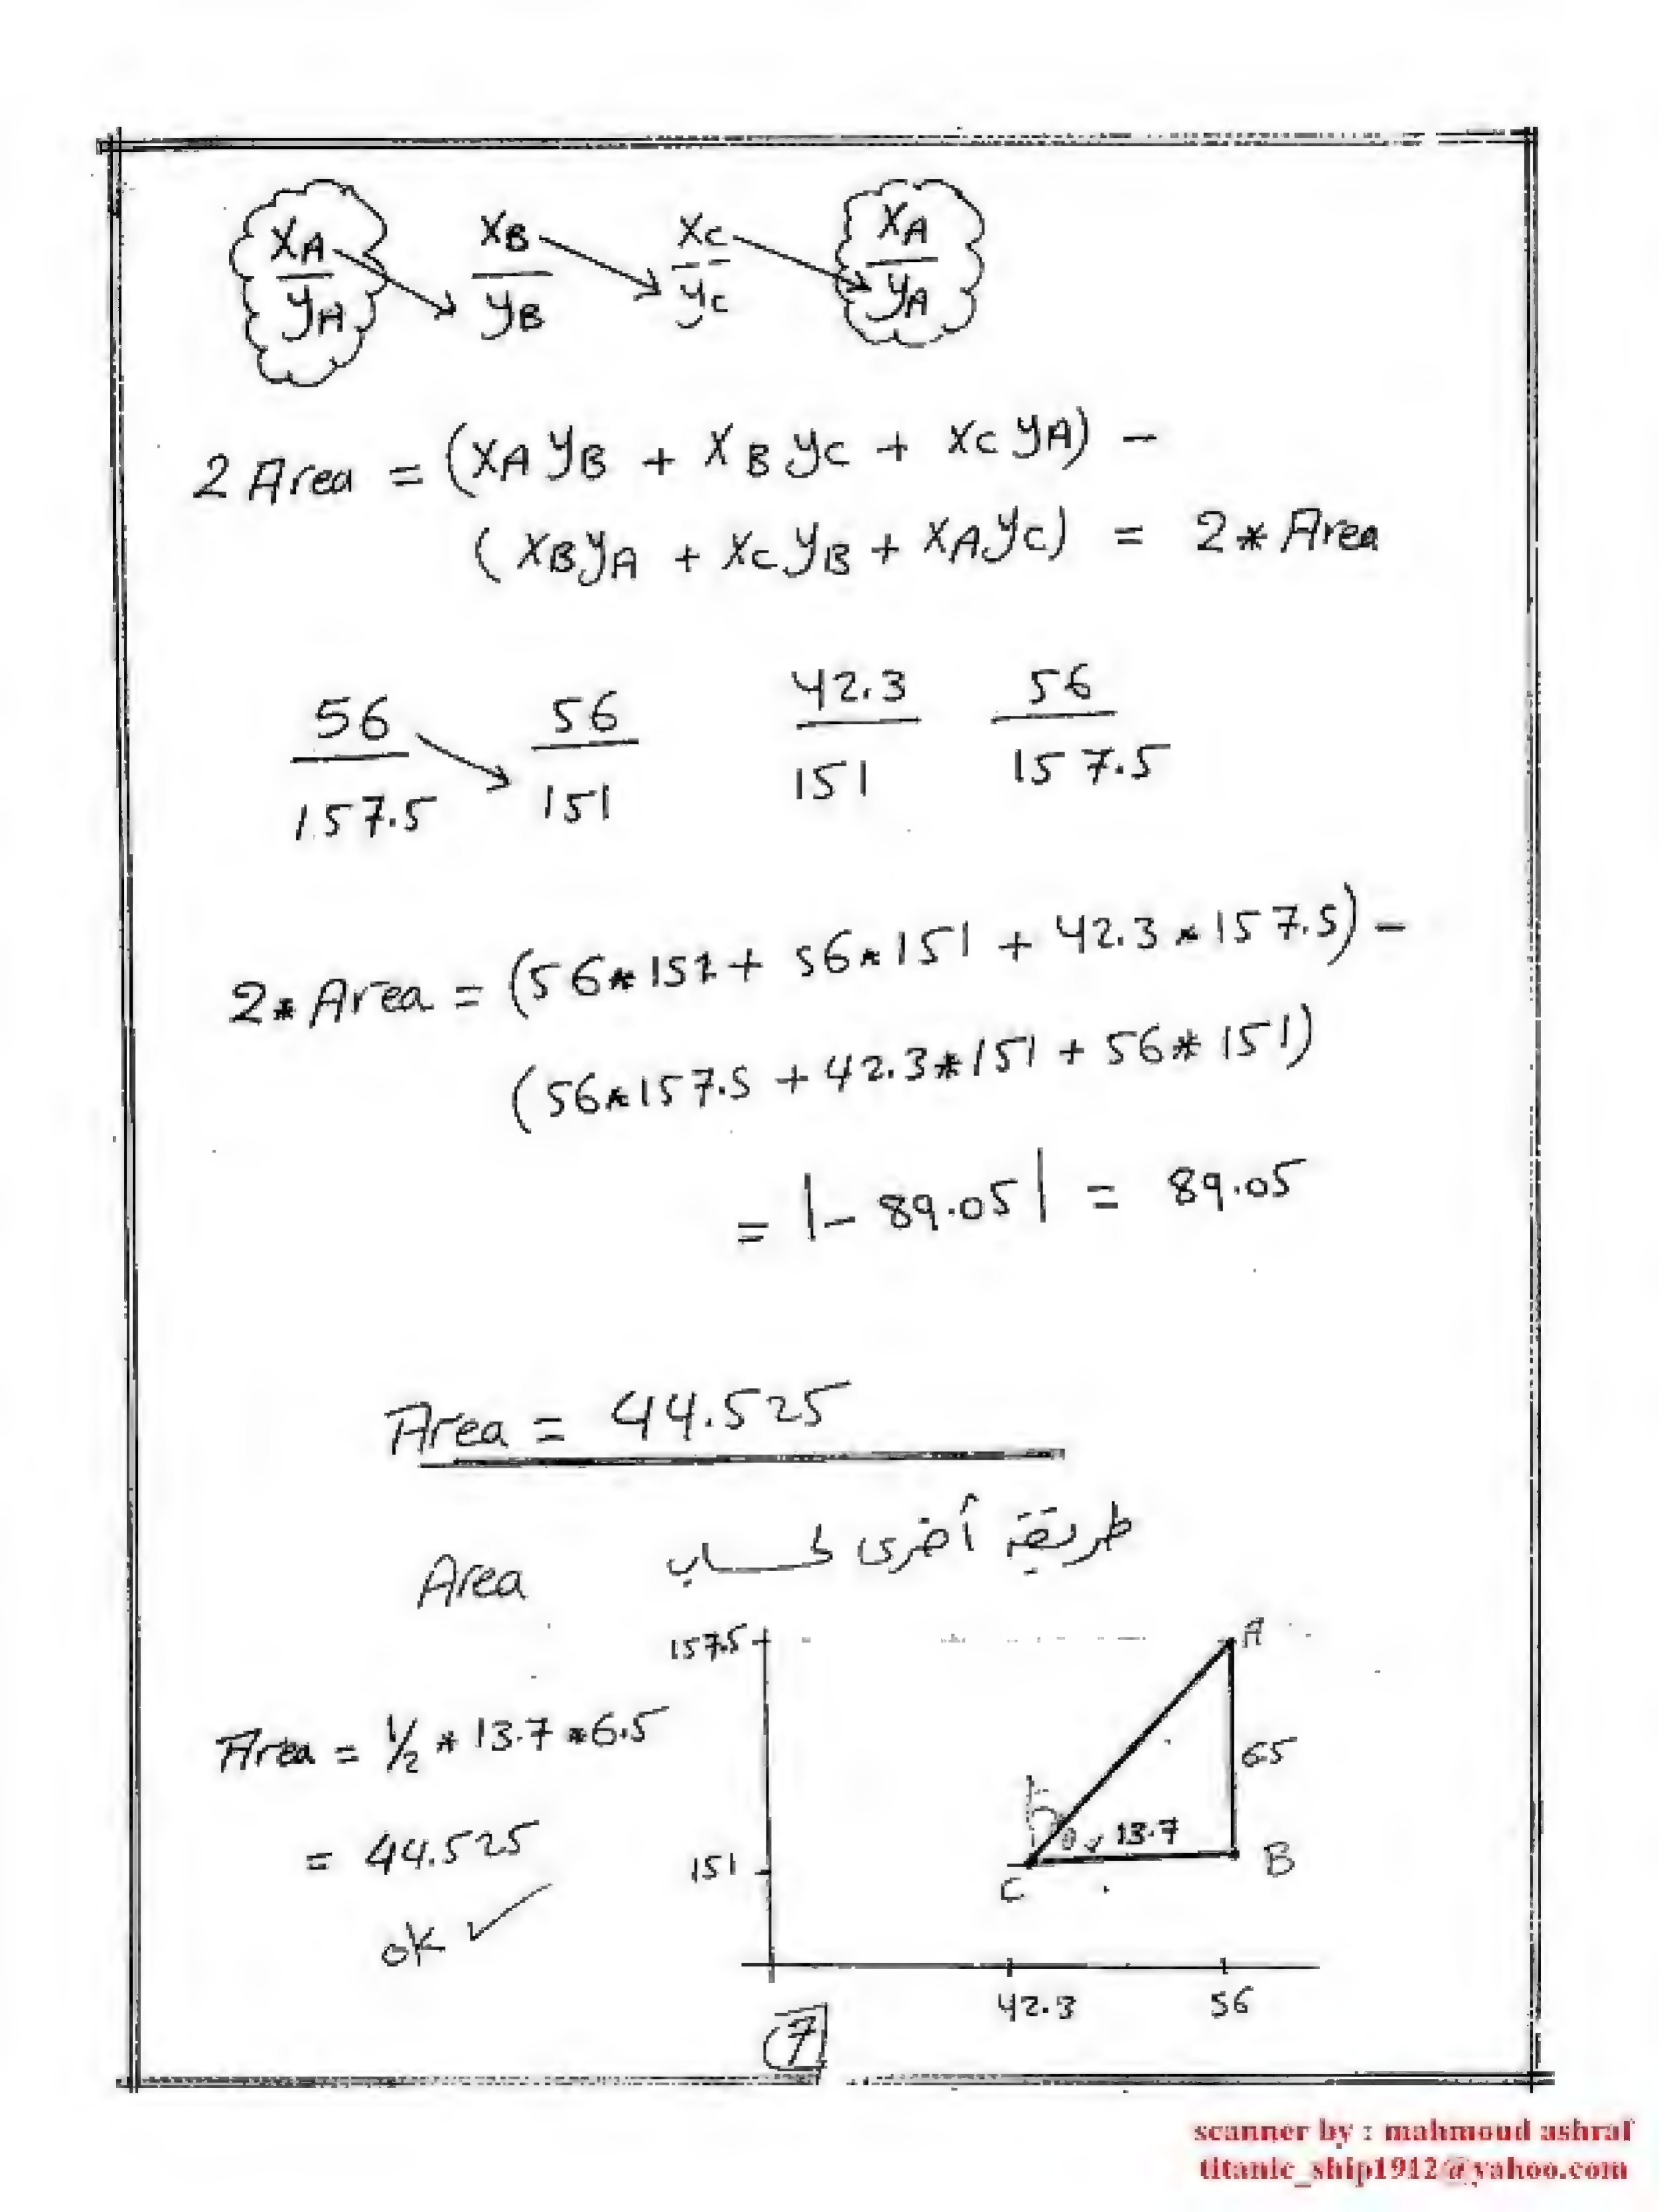 xA xB xC xA
yA yB yC yA
2 Area = (xA yB + xB yC + xC yA) -
(xB yA + xC yB + xA yC) = 2 * Area
56 56 42.3 56
157.5 151 151 157.5
2 * Area = (56 * 151 + 56 * 151 + 42.3 * 157.5) -
(56 * 157.5 + 42.3 * 151 + 56 * 151)
= |- 89.05| = 89.05
Area = 44.525
طريقة أخرى لحساب Area
157.5 A
Area = 1/2 * 13.7 * 6.5
6.5
= 44.525
13.7
151 C B
ok ✓
42.3 56
7
scanner by : mahmoud ashraf
titanic_ship1912@yahoo.com